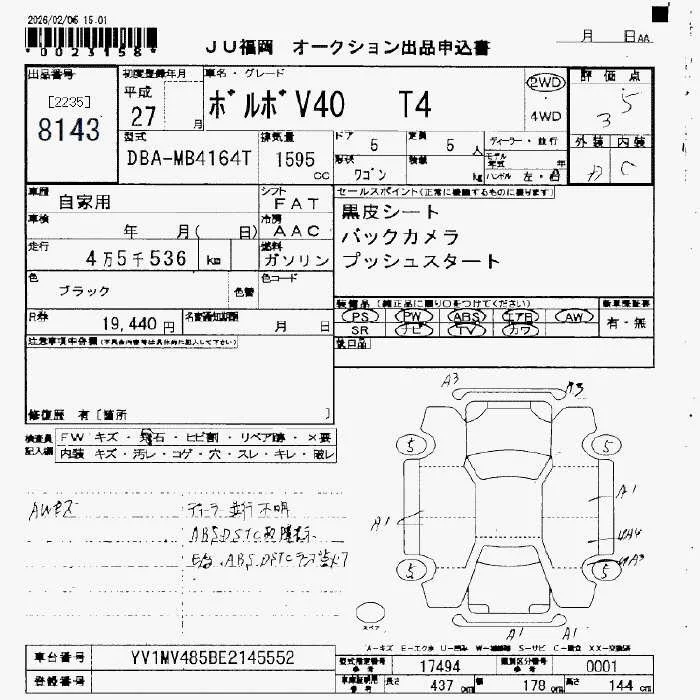 2026/02/06 15.01
*0023158*
JU福岡 オークション出品申込書
月 日AA
出品番号
[2235]
8143
初度登録年月
平成
27 月
車名・グレード
ボルボV40 T4
2WD
4WD
評価点
3.5
外装 内装
C
型式
DBA-MB4164T
排気量
1595 cc
ドア
5
定員
5 人
形状
ワゴン
積載
kg
ディーラー・並行
モデル年式 年
ハンドル 左・右
車歴
自家用
シフト
FAT
車検
年 月( 日)
冷房
AAC
走行
4万5千536 km
燃料
ガソリン
色
ブラック
色替
色コード
セールスポイント(正常に機能するものに限ります)
黒皮シート
バックカメラ
プッシュスタート
装備品(純正品に限り○をつけてください)
PS PW ABS エアB AW
SR ナビ TV カワ
新車保証書
有・無
後日品
R券
19,440円
名変通知期限
月 日
注意事項申告欄
修復歴 有[箇所 ]
検査員
記入欄
FW キズ・飛石・ヒビ割・リペア跡・×要
内装 キズ・汚レ・コゲ・穴・スレ・キレ・破レ
AWキズ
ディーラ 並行不明
ABS、DSTC故障表示
A3
A3
5
5
A1
A1
5
5
A1
A1
スペア
A-キズ E-エクボ U-凹み
車台番号
YV1MV485BE2145552
登録番号
型式指定番号
参考
17494
類別区分番号
参考
0001
車庫証明用
参考
長さ
437 cm
幅
178 cm
高さ
144 cm